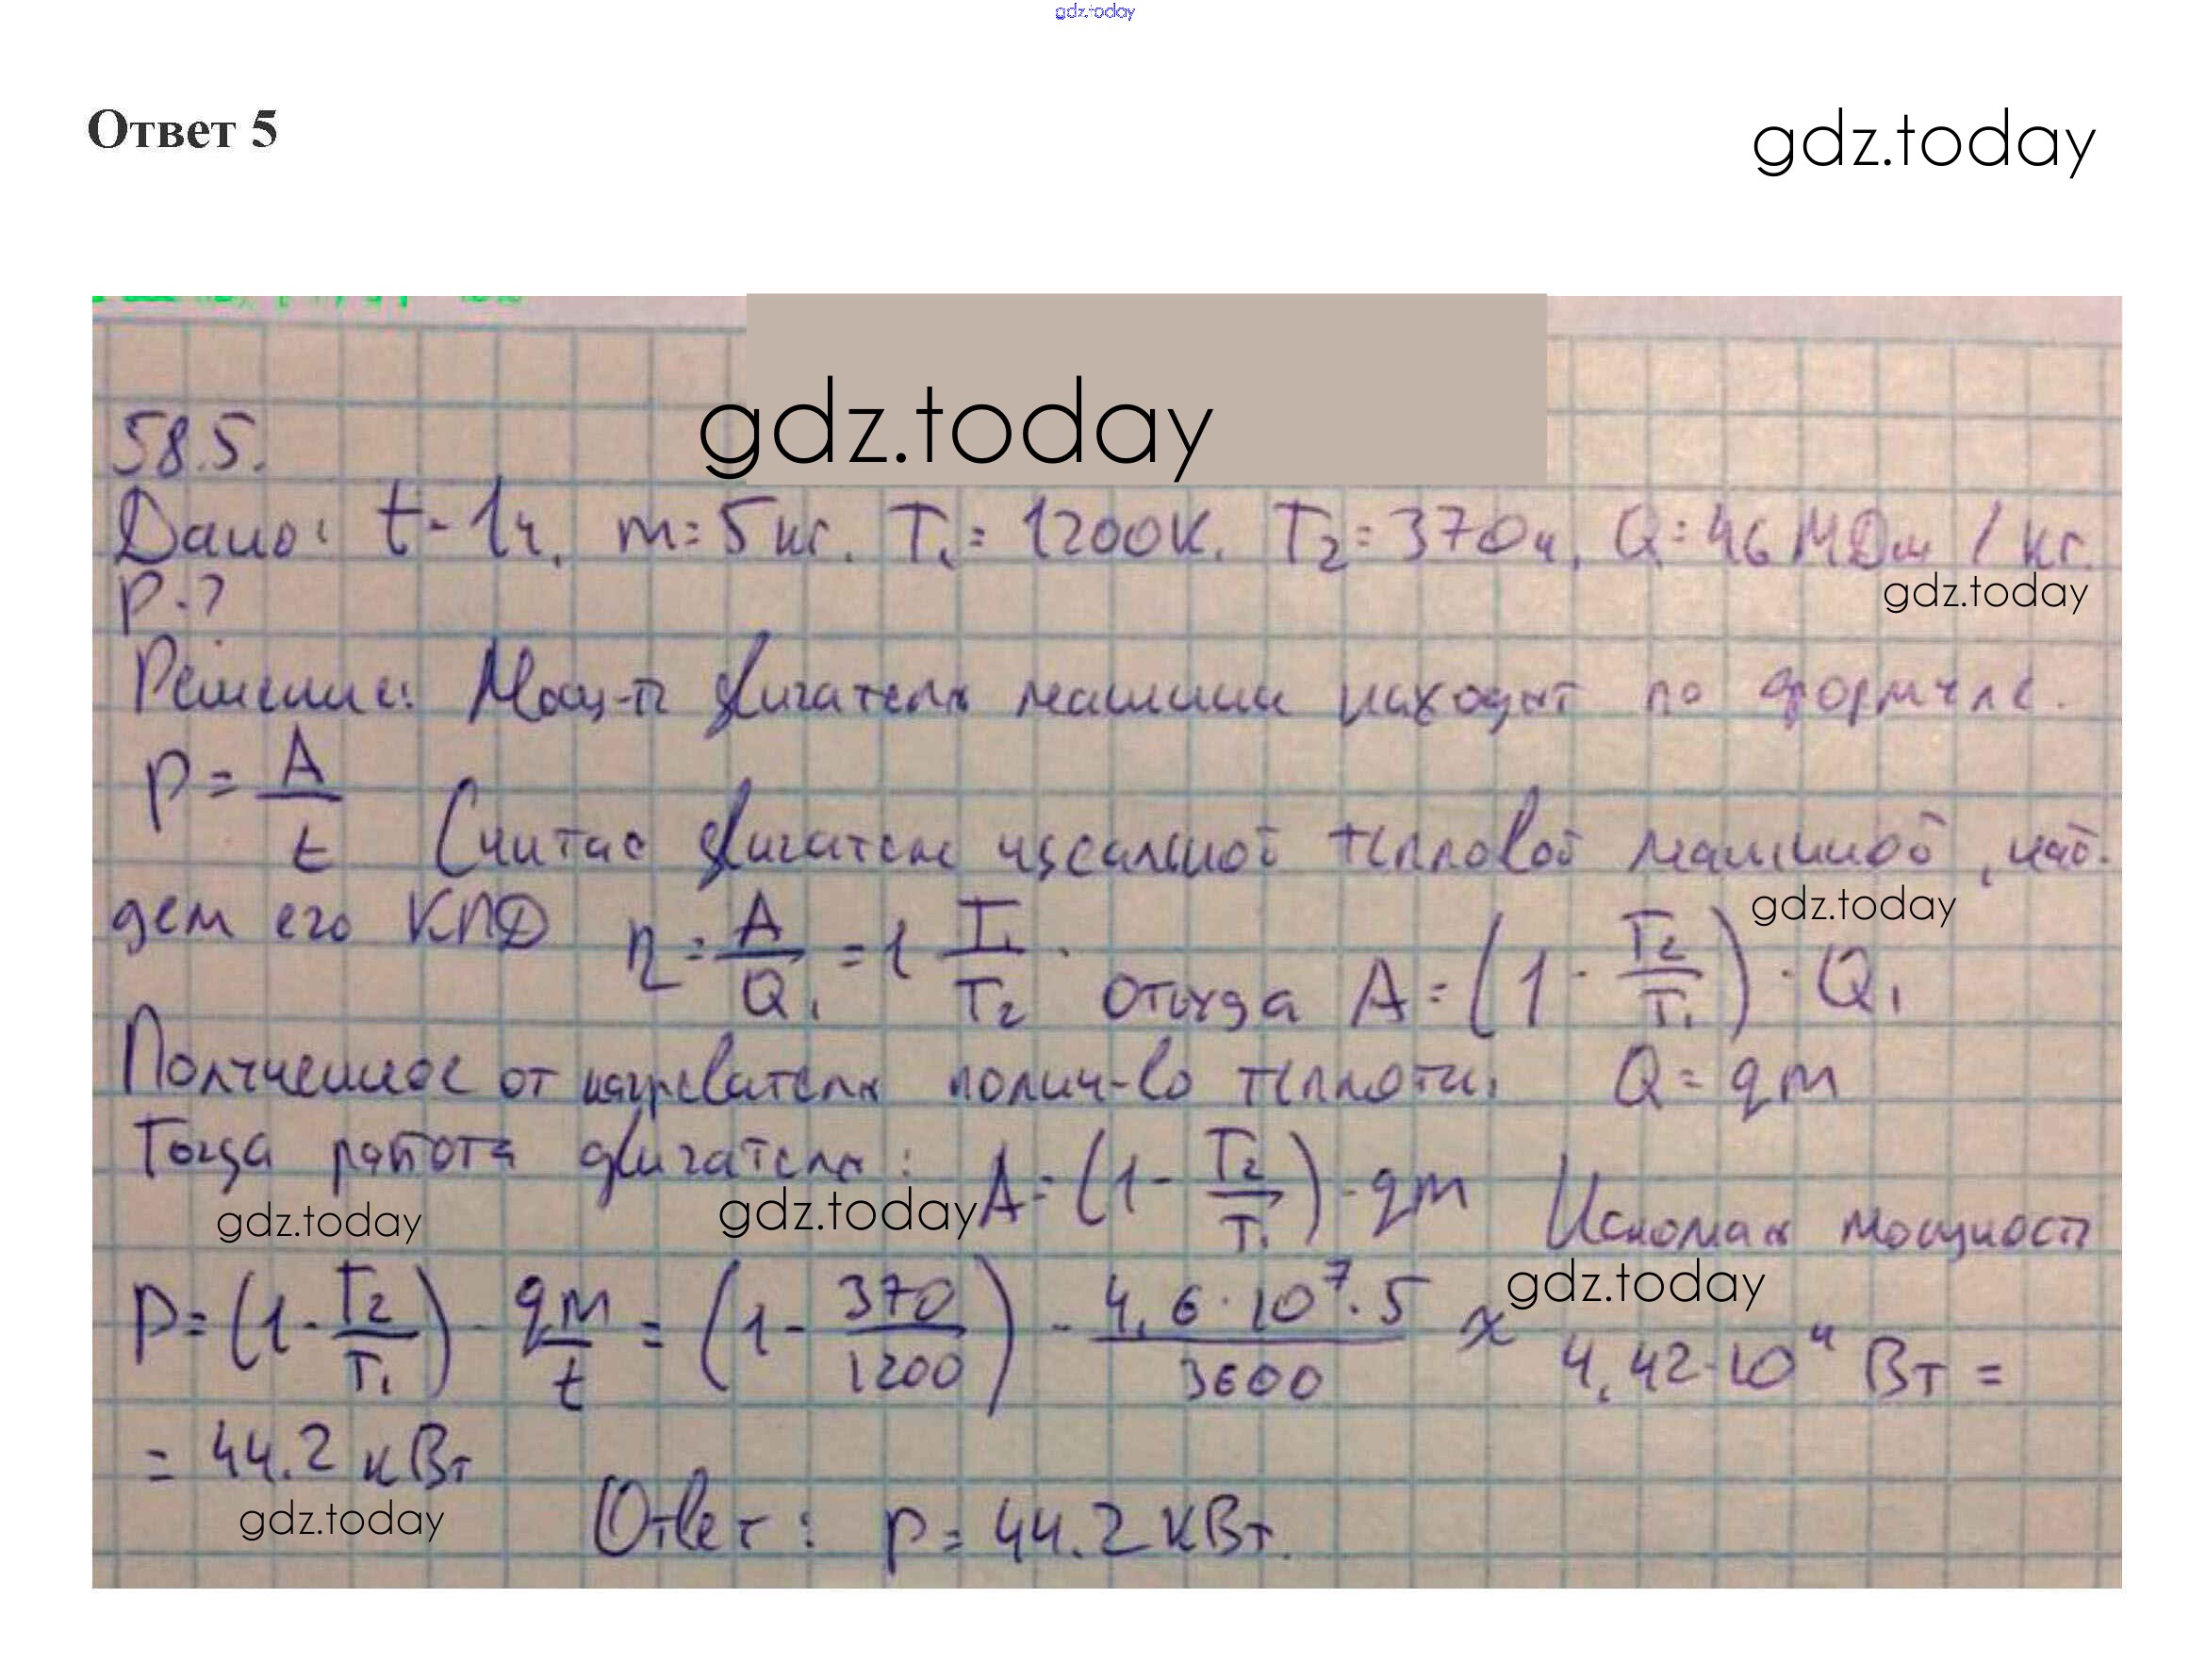 gdz.today
Ответ 5
gdz.today
gdz.today
58.5.
Дано: t = 1ч. m = 5 кг. T₁ = 1200К. T₂ = 370ч, Q = 46 МДж / кг.
gdz.today
P - ?
Решение: Мощ-ть двигателя машины находят по формуле.
P = A/t Считая двигатель идеальной тепловой машиной, най-
gdz.today
дем его КПД η = A/Q₁ = 1 T₁/T₂. Откуда A = (1 - T₂/T₁) · Q₁
Полученное от нагревателя колич-во теплоты: Q = qm
Тогда работа двигателя: A = (1 - T₂/T₁) · qm Искомая мощность
gdz.today gdz.today
gdz.today
P = (1 - T₂/T₁) · qm/t = (1 - 370/1200) · 4,6·10⁷·5/3600 ≈ 4,42·10⁴ Вт =
= 44.2 кВт
gdz.today
Ответ: P = 44.2 кВт.